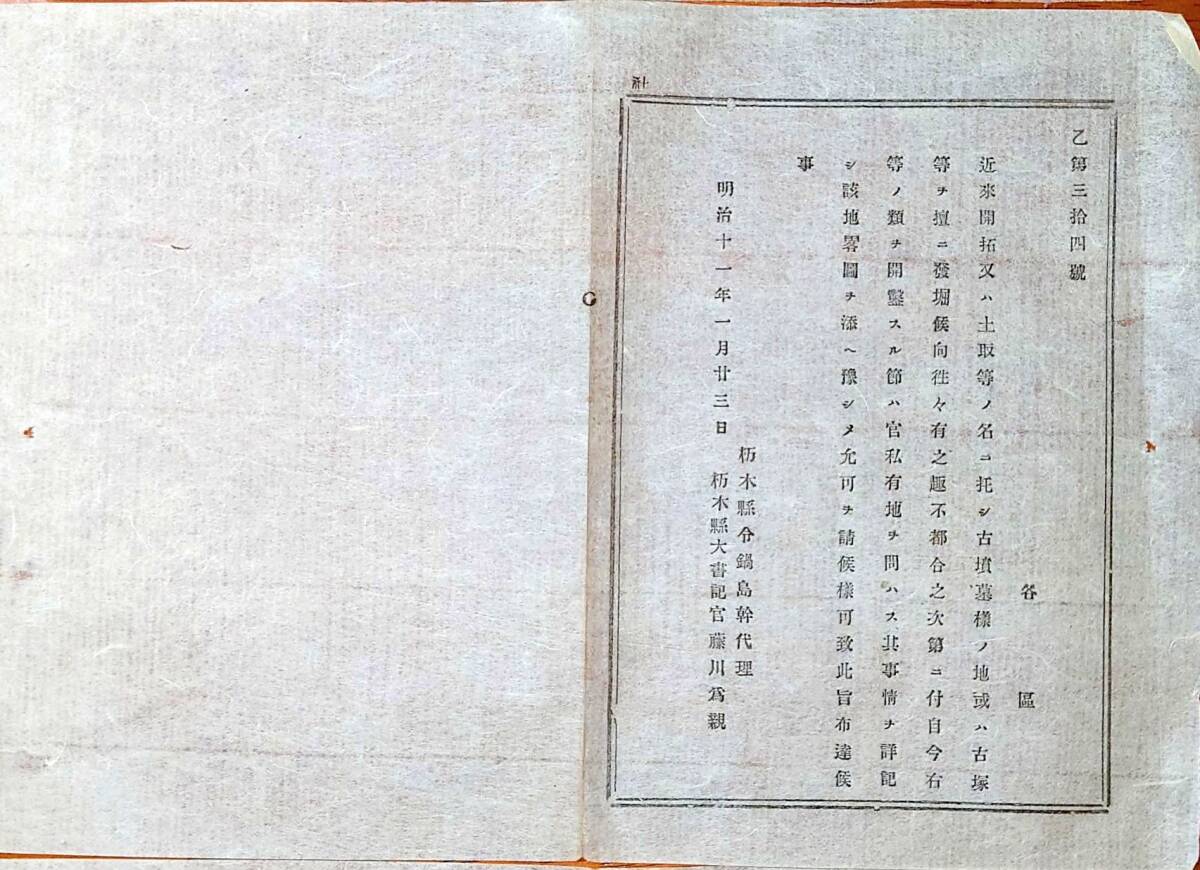 社
乙第三拾四號
各區
近來開拓又ハ土取等ノ名ニ托シ古墳墓樣ノ地或ハ古塚
等ヲ擅ニ發堀候向徃々有之趣不都合之次第ニ付自今右
等ノ類ヲ開鑿スル節ハ官私有地ヲ問ハス其事情ヲ詳記
シ該地畧圖ヲ添ヘ豫シメ允可ヲ請候樣可致此旨布達候
事
明治十一年一月廿三日
栃木縣令鍋島幹代理
栃木縣大書記官藤川爲親